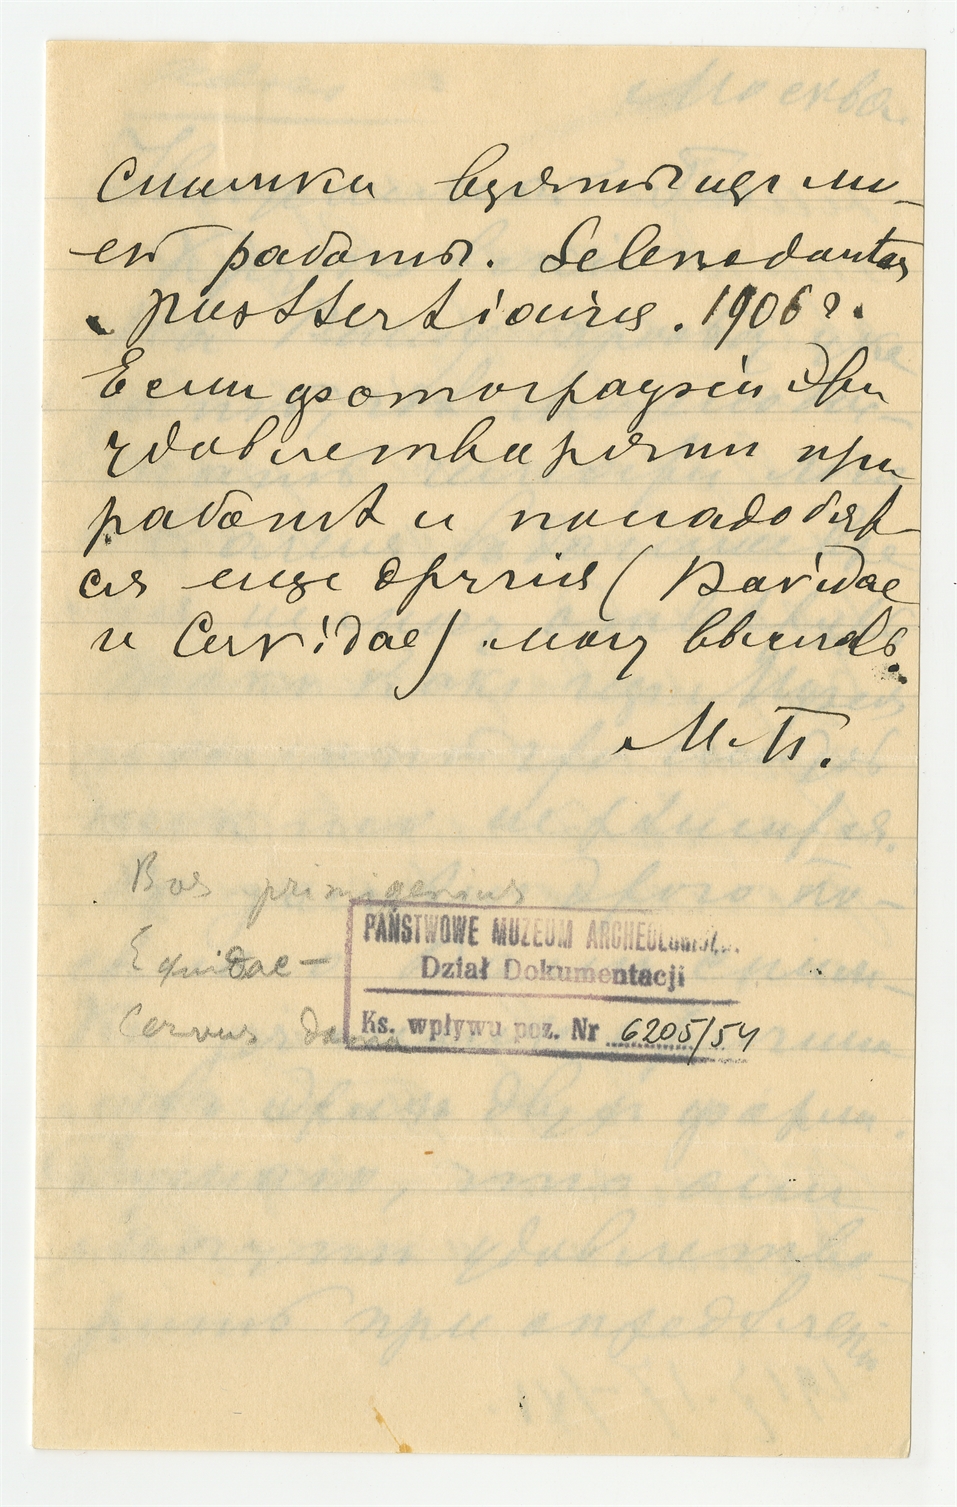 Снимки взяты изъ мо-
ей работы. Selenodontes
posttertiaires. 1906 г.
Если фотографiи эти
удовлетворятъ при
работѣ и понадобят-
ся еще другiя (Bovidae
и Cervidae) могу выслать.
М. П.
Bos primigenius
Equidae —
Cervus dama
PAŃSTWOWE MUZEUM ARCHEOLOGICZ.
Dział Dokumentacji
Ks. wpływu poz. Nr 6205/54